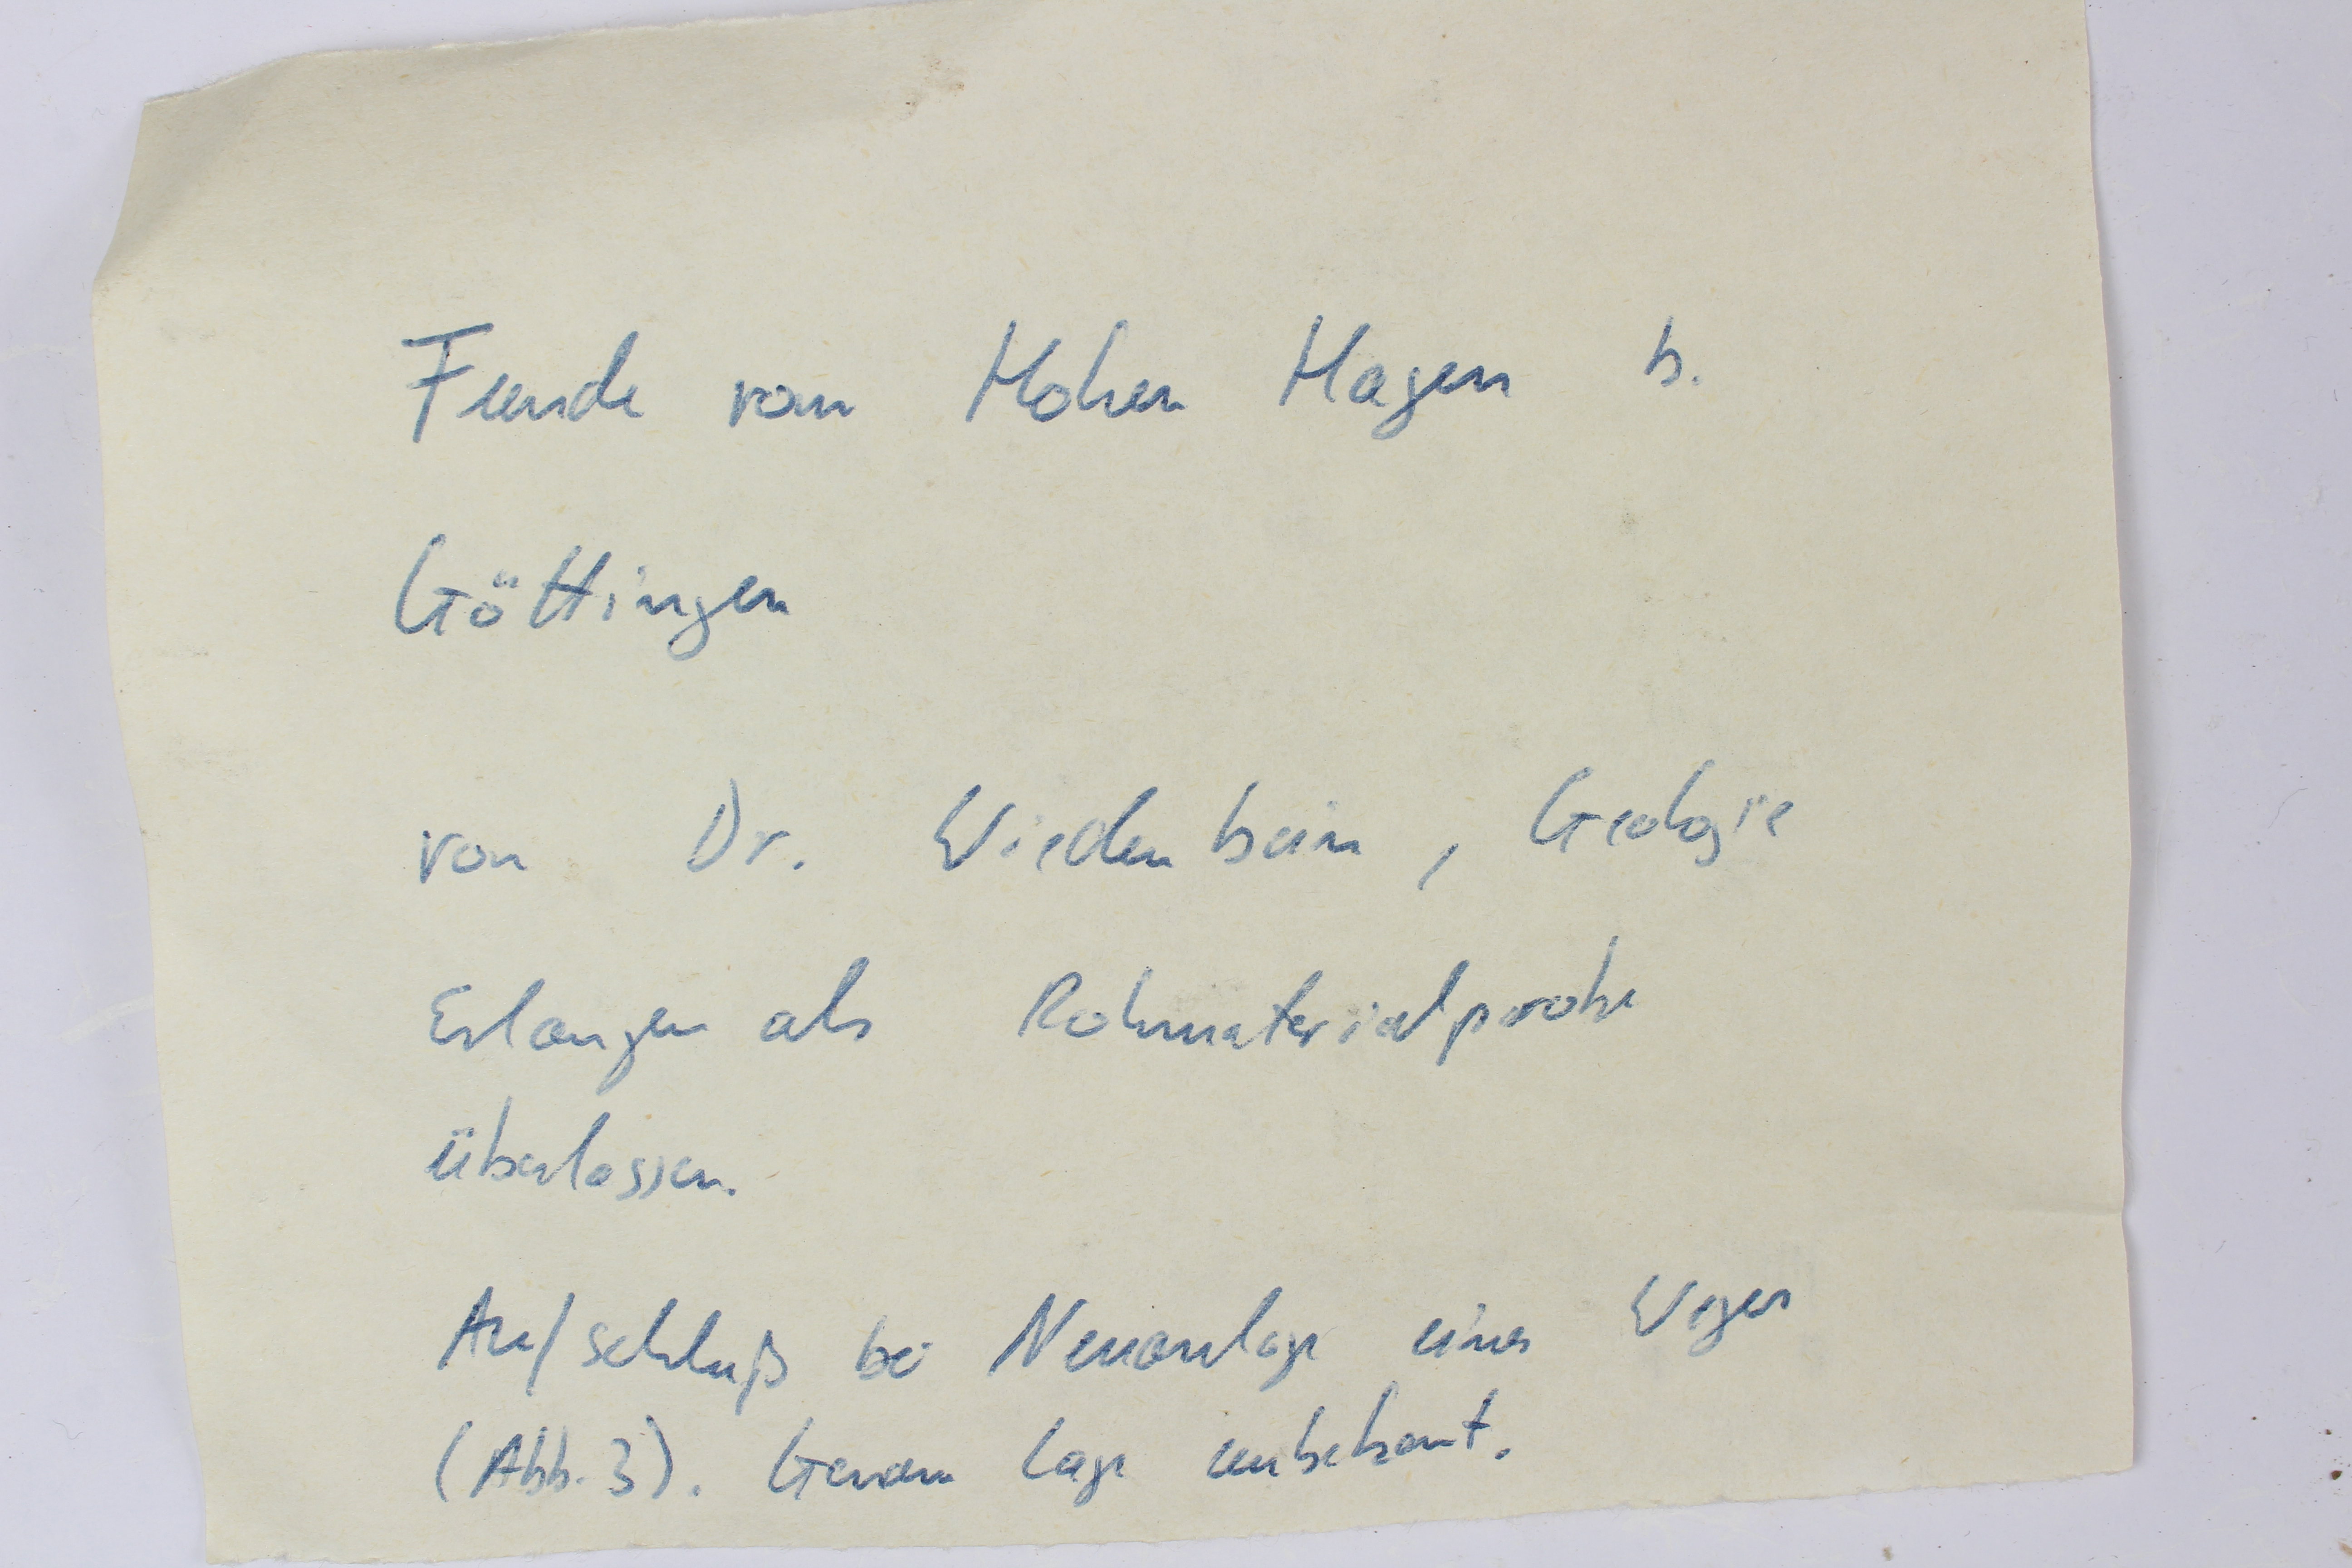 Funde vom Hohen Hagen b.
Göttingen
von Dr. Wiedenbein, Geologie
Erlangen als Rohmaterialprobe
überlassen.
Aufschluß bei Neuanlage eines Weges
(Abb. 3). Genaue Lage unbekannt.